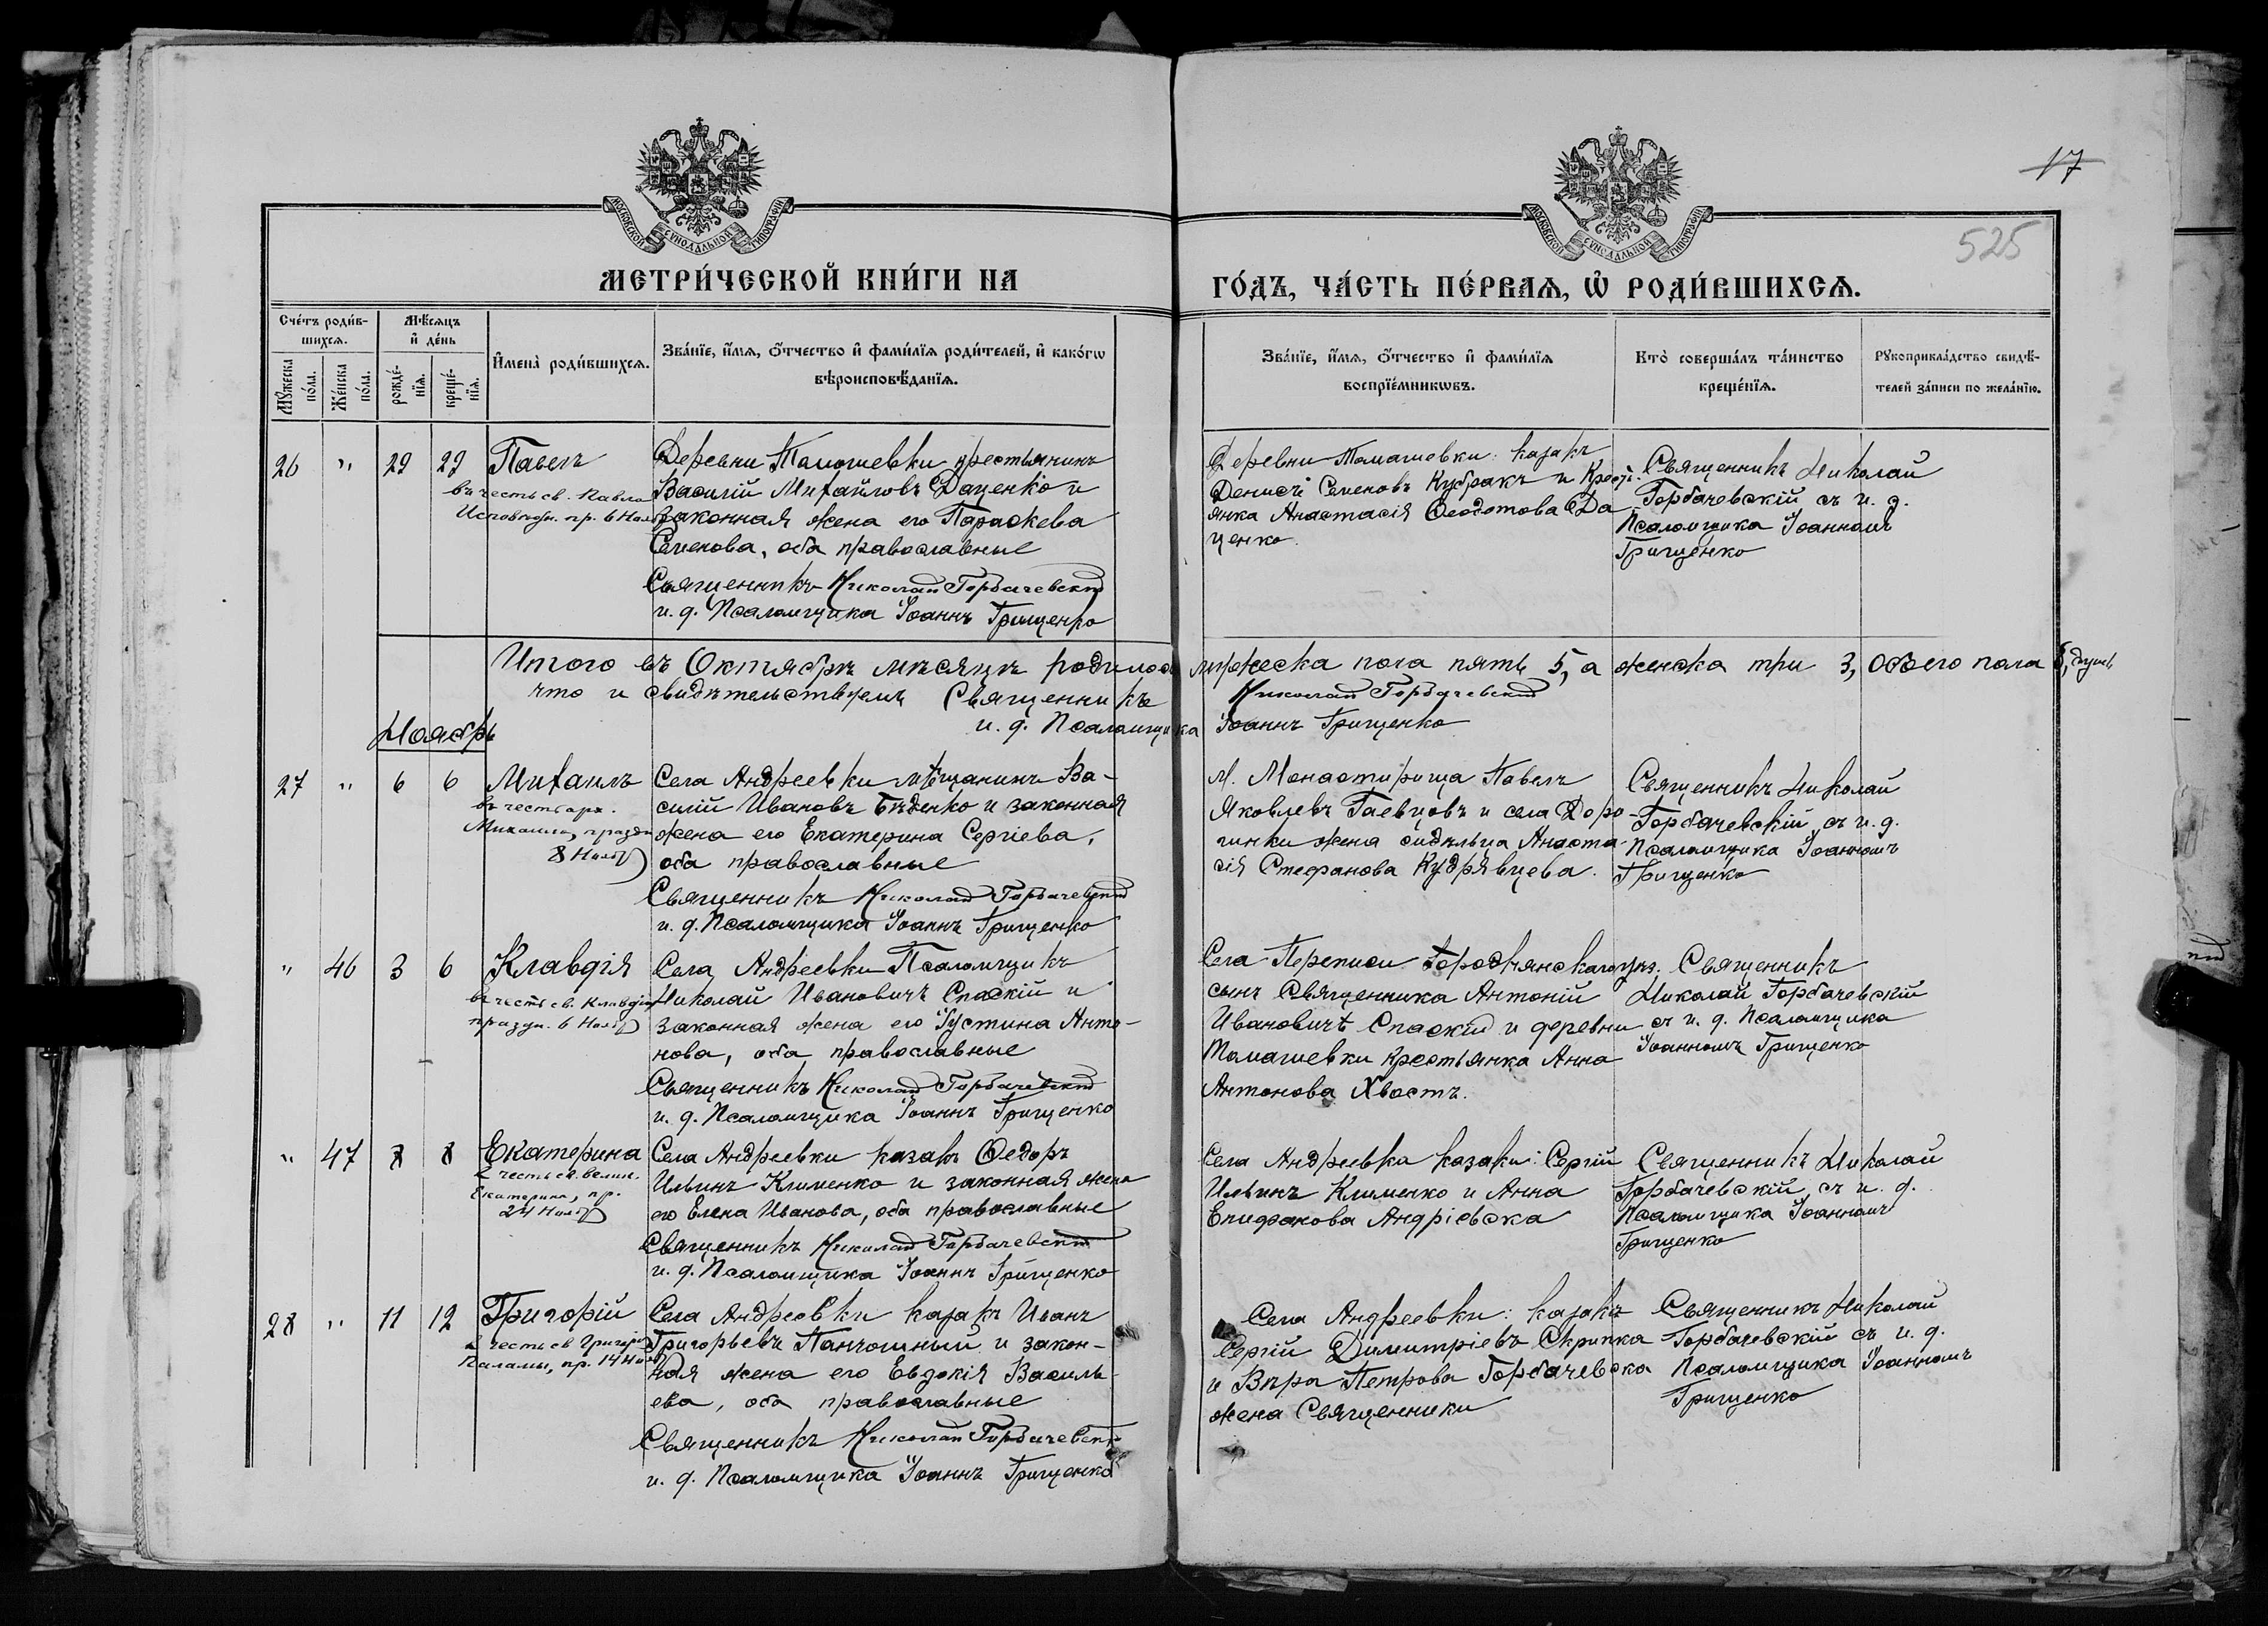 17
525
МОСКОВСКОЙ СѴНОДАЛЬНОЙ ТИПОГРАФІИ
МОСКОВСКОЙ СѴНОДАЛЬНОЙ ТИПОГРАФІИ
МЕТРИ́ЧЕСКОЙ КНИ́ГИ НА
ГО́ДЪ, ЧА́СТЬ ПЕ́РВАѦ, Ѡ҆ РОДИ́ВШИХСѦ.
Сче́тъ роди́в-
шихсѧ.
Мꙋ́жеска
по́ла.
Же́нска
по́ла.
Мѣ́сѧцъ
и҆ де́нь
рожде́-
нїѧ.
креще́-
нїѧ.
И҆мена̀ роди́вшихсѧ.
Зва́нїе, и҆́мѧ, ѻ҆́тчество и҆ фами́лїѧ роди́телей, и҆ како́гѡ
вѣроисповѣ́данїѧ.
Зва́нїе, и҆́мѧ, ѻ҆́тчество и҆ фами́лїѧ
воспрїе́мникѡвъ.
Кто̀ соверша́лъ та́инство
креще́нїѧ.
Рꙋкоприкла́дство свидѣ́-
телей за́писи по жела́нїю.
26 " 29 29 Павелъ
въ честь св. Павла
Исповѣдн. пр. 6 Нояб)
Деревни Томашевки крестьянинъ
Василій Михайловъ Даценко и
законная жена его Параскева
Семенова, оба православные
Священникъ Николай Горбачевскій
и. д. Псаломщика Іоаннъ Грищенко
Деревни Томашевки: казакъ
Денисъ Семеновъ Кубракъ и Крест.
янка Анастасія Ѳеодотова Да-
ценко.
Священникъ Николай
Горбачевскій съ и. д.
Псаломщика Іоанномъ
Грищенко
Итого въ Октябрѣ мѣсяцѣ родилось мужеска пола пять 5, а женска три 3, обоего пола 8, душъ
что и свидѣтельствуемъ Священникъ Николай Горбачевскій
и. д. Псаломщика Іоаннъ Грищенко
Ноябрь
27 " 6 6 Михаилъ
въ честь арх.
Михаила, праздн
8 Нояб)
Села Андреевки мѣщанинъ Ва-
силій Ивановъ Бѣденко и законная
жена его Екатерина Сергіева,
оба православные
Священникъ Николай Горбачевскій
и. д. Псаломщика Іоаннъ Грищенко
М. Монастырища Павелъ
Яковлевъ Гаевцовъ и села Доро-
гинки жена сидѣльца Анаста-
сія Стефанова Кудрявцева.
Священникъ Николай
Горбачевскій съ и. д.
Псаломщика Іоанномъ
Грищенко
" 46 3 6 Клавдія
въ честь св. Клавдіи
праздн. 6 Нояб)
Села Андреевки Псаломщикъ
Николай Ивановичъ Спаскій и
законная жена его Іустина Анто-
нова, оба православные
Священникъ Николай Горбачевскій
и. д. Псаломщика Іоаннъ Грищенко
Села Переписи Городнянскаго уѣз.
сынъ Священника Антоній
Ивановичъ Спаскій и деревни
Томашевки крестьянка Анна
Антонова Хвостъ.
Священникъ
Николай Горбачевскій
съ и. д. Псаломщика
Іоанномъ Грищенко
" 47 8 8 Екатерина
въ честь св. велик.
Екатерины, пр.
24 Нояб)
Села Андреевки казакъ Ѳеодоръ
Ильинъ Клименко и законная жена
его Елена Иванова, оба православные
Священникъ Николай Горбачевскій
и. д. Псаломщика Іоаннъ Грищенко
Села Андреевка казаки: Сергій
Ильинъ Клименко и Анна
Епифанова Андріевска
Священникъ Николай
Горбачевскій, съ и. д.
Псаломщика Іоанномъ
Грищенко
28 " 11 12 Григорій
въ честь св Григорія
Паламы, пр. 14 Нояб)
Села Андреевки казакъ Иванъ
Григорьевъ Панчошный и закон-
ная жена его Евдокія Василь-
ева, оба православные
Священникъ Николай Горбачевскій
и. д. Псаломщика Іоаннъ Грищенко
Села Андреевки: казакъ
Сергій Димитріевъ Скрипка
и Вѣра Петрова Горбачевска
жена Священники
Священникъ Николай
Горбачевскій съ и. д.
Псаломщика Іоанномъ
Грищенко